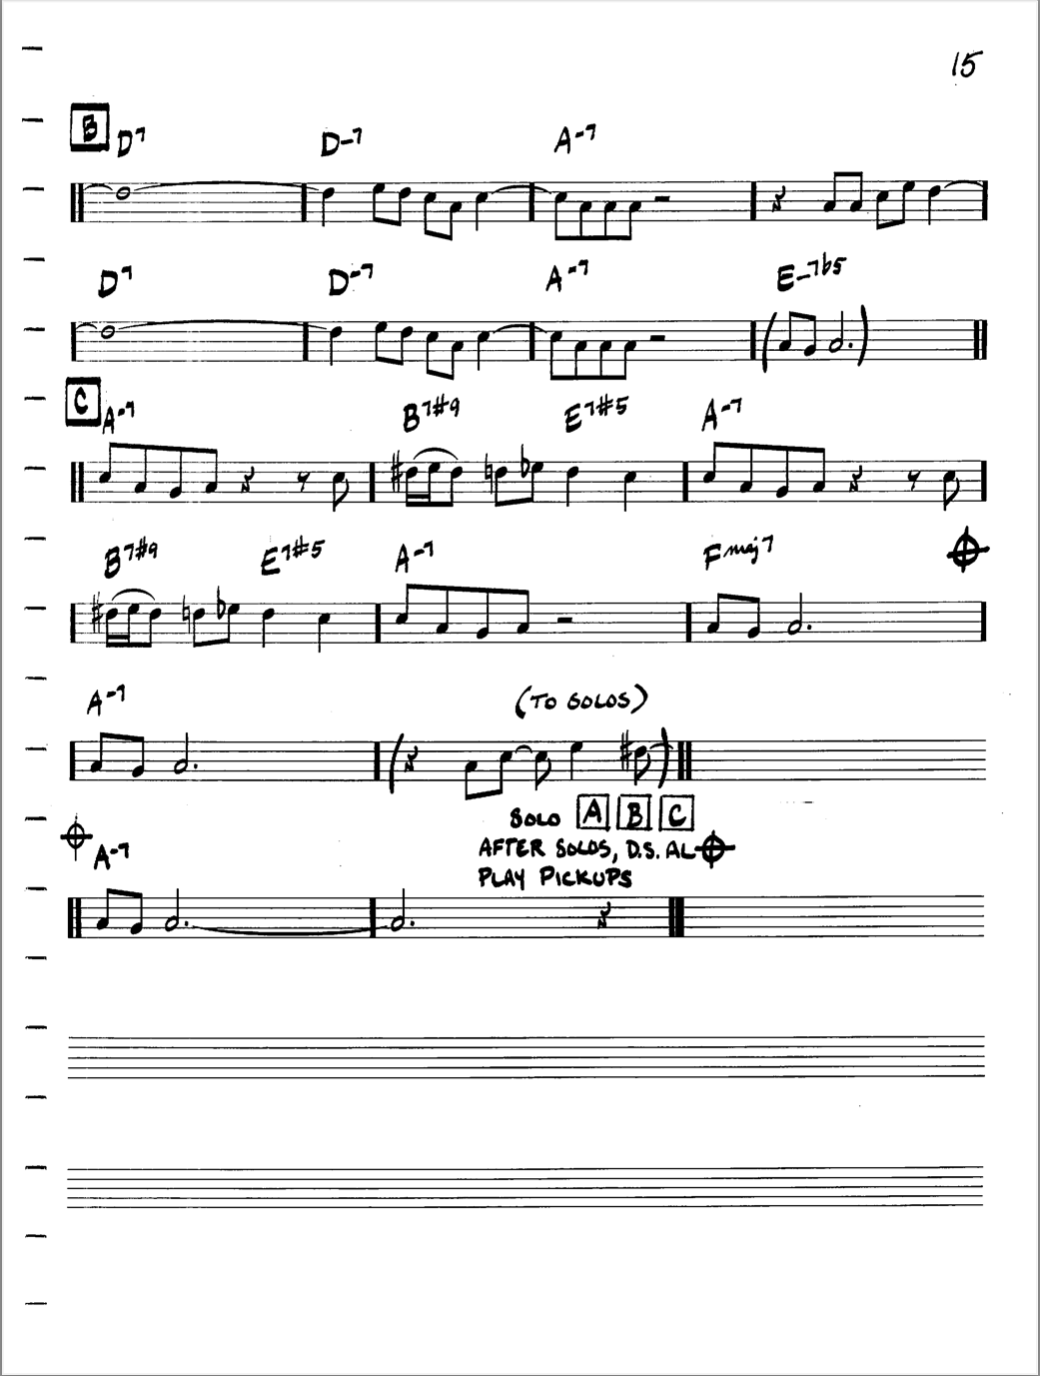 15
B D7 D-7 A-7
D7 D-7 A-7 E-7b5
C A-7 B7#9 E7#5 A-7
B7#9 E7#5 A-7 Fmaj7
A-7 (TO SOLOS)
SOLO A B C
AFTER SOLOS, D.S. AL
PLAY PICKUPS
A-7